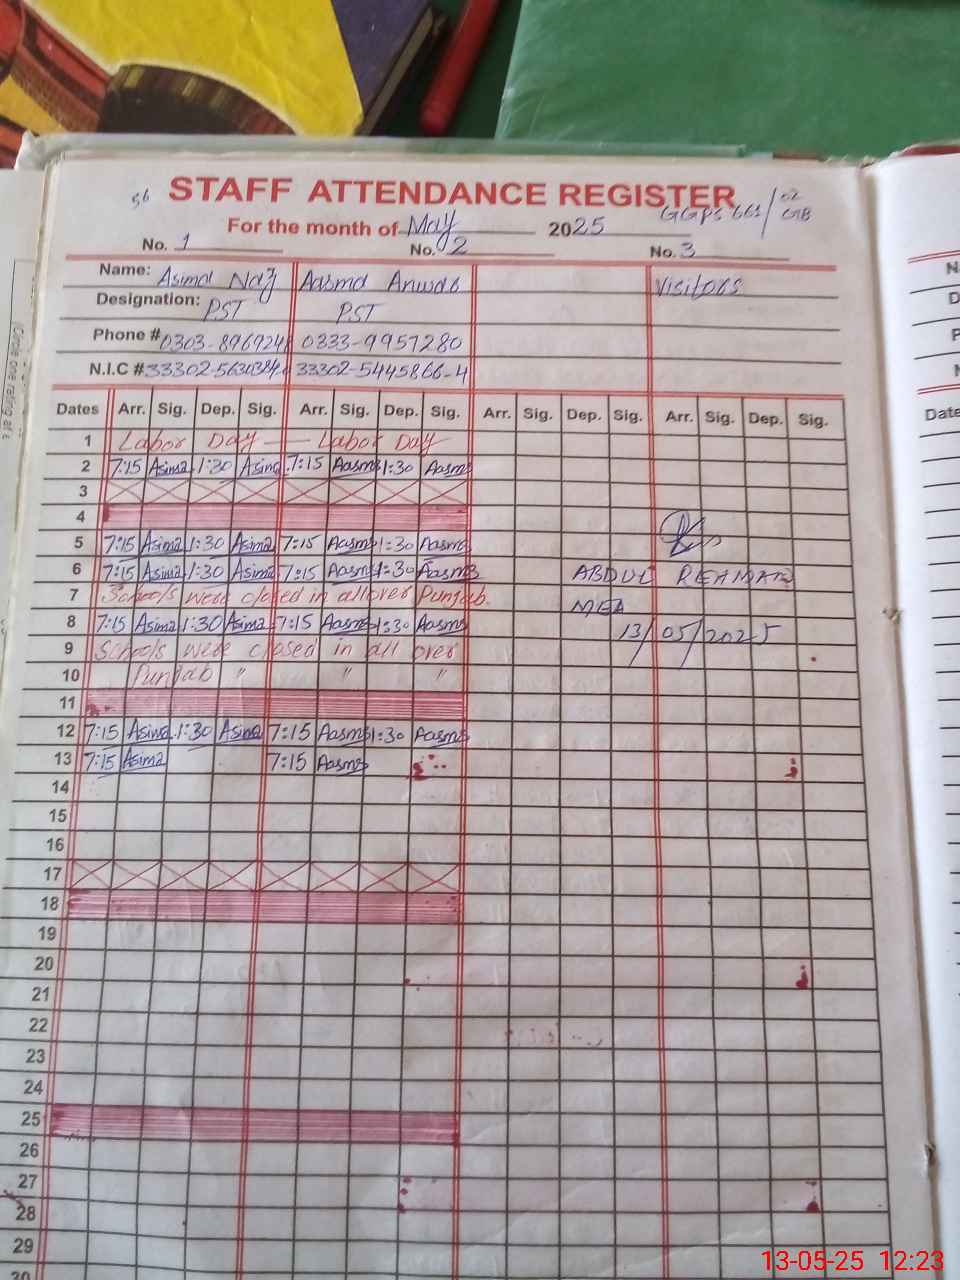 56 STAFF ATTENDANCE REGISTER
For the month of May 2025 GGPS 661/02 GB
No. 1 No. 2 No. 3
Name: Asima Naz Aasma Anwar Visitors
Designation: PST PST
Phone # 0303-896924 0333-9957280
N.I.C # 33302- 33302-5445866-4
Dates Arr. Sig. Dep. Sig. Arr. Sig. Dep. Sig. Arr. Sig. Dep. Sig. Arr. Sig. Dep. Sig.
1 Labor Day — — Labor Day
2 7:15 Asima 1:30 Asima 7:15 Aasma 1:30 Aasma
3
4
5 7:15 Asima 1:30 Asima 7:15 Aasma 1:30 Aasma
6 7:15 Asima 1:30 Asima 7:15 Aasma 1:30 Aasma ABDUL REHMAN
7 Schools were closed in all over Punjab. MEA
8 7:15 Asima 1:30 Asima 7:15 Aasma 1:30 Aasma 13/05/2025
9 Schools were closed in all over
10 Punjab " " "
11
12 7:15 Asima 1:30 Asima 7:15 Aasma 1:30 Aasma
13 7:15 Asima 7:15 Aasma
14
15
16
17
18
19
20
21
22
23
24
25
26
27
28
29
30
13-05-25 12:23